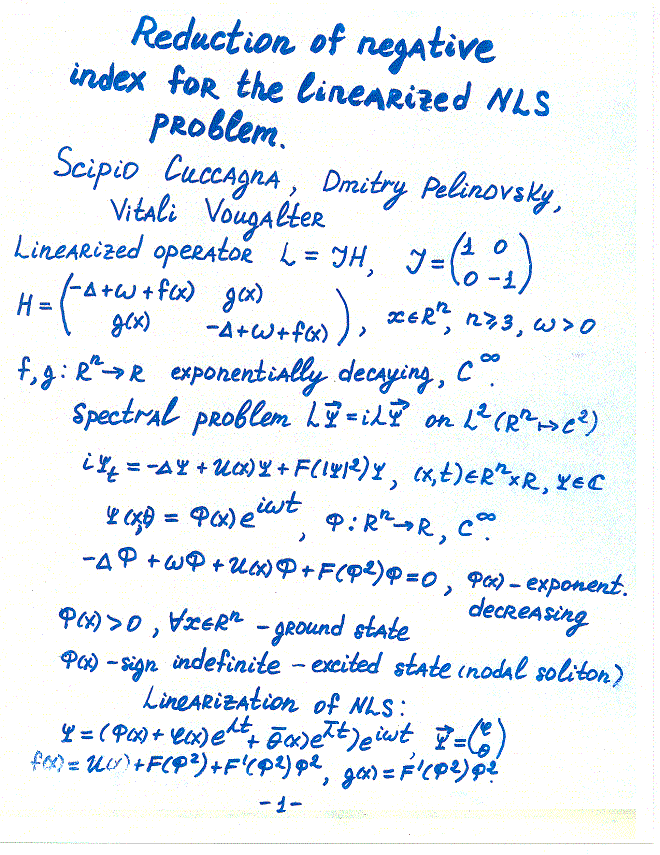 Reduction of negative
index for the linearized NLS
problem.
Scipio Cuccagna, Dmitry Pelinovsky,
Vitali Vougalter
Linearized operator L = JH, J = (1 0
0 -1)
H = (-Δ+ω+f(x) g(x)
g(x) -Δ+ω+f(x)), x∈Rⁿ, n≥3, ω>0
f,g: Rⁿ→R exponentially decaying, C^∞.
Spectral problem Lψ⃗ = iλψ⃗ on L²(Rⁿ↦C²)
iψₜ = -Δψ + U(x)ψ + F(|ψ|²)ψ, (x,t)∈Rⁿ×R, ψ∈C
ψ(x,t) = Φ(x)e^{iωt}, Φ: Rⁿ→R, C^∞.
-ΔΦ + ωΦ + U(x)Φ + F(Φ²)Φ = 0, Φ(x) – exponent.
decreasing
Φ(x)>0, ∀x∈Rⁿ – ground state
Φ(x) – sign indefinite – excited state (nodal soliton)
Linearization of NLS:
ψ = (Φ(x) + φ(x)e^{λt} + θ̄(x)e^{λ̄t})e^{iωt}, ψ⃗ = (φ
θ)
f(x) = U(x) + F(Φ²) + F'(Φ²)Φ², g(x) = F'(Φ²)Φ².
-1-